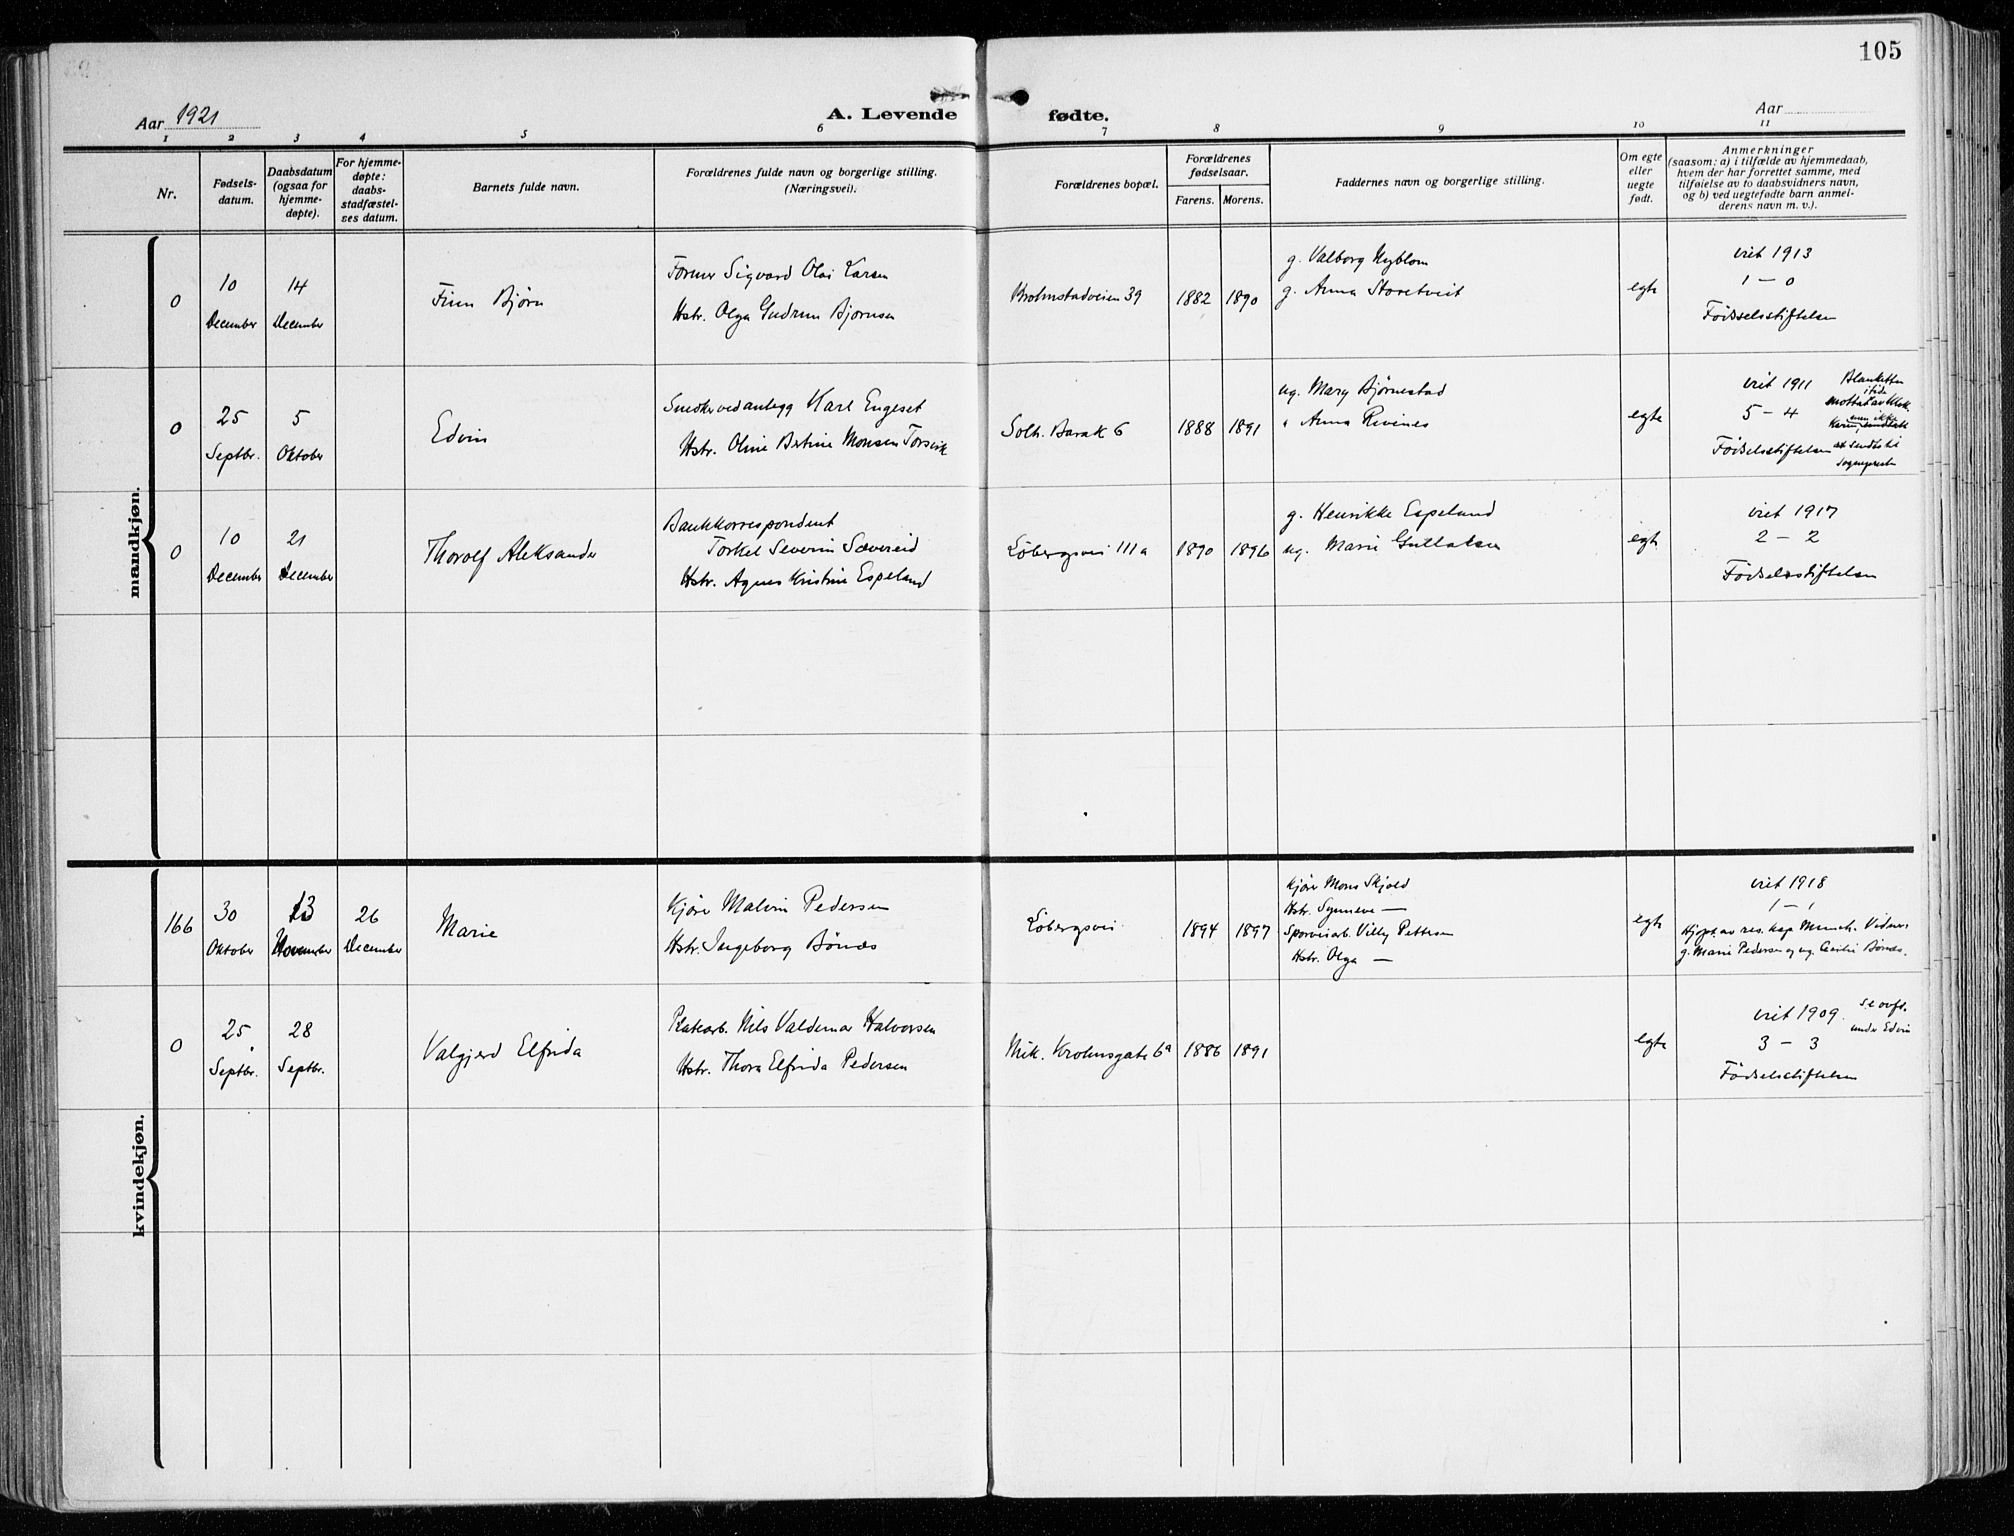 105
Aar 1921
A. Levende fødte.
Aar
1 2 3 4 5 6 7 8 9 10 11
Nr.
Fødsels-
datum.
Daabsdatum
(ogsaa for
hjemme-
døpte).
For hjemme-
døpte:
daabs-
stadfæstel-
ses datum.
Barnets fulde navn.
Forældrenes fulde navn og borgerlige stilling.
(Næringsvei).
Forældrenes bopæl.
Forældrenes
fødselsaar.
Farens. Morens.
Faddernes navn og borgerlige stilling.
Om egte
eller
uegte
født.
Anmerkninger
(saasom: a) i tilfælde av hjemmedaab,
hvem der har forrettet samme, med
tilføielse av to daabsvidners navn,
og b) ved uegtefødte barn anmel-
derens navn m. v.).
mandkjøn.
0
10
December
14
December
Finn Bjørn
Former Sigvard Olai Larsen
Hstr. Olga Gudrun Bjørnsen
Krohnstadveien 39
1882 1890
g. Valborg Nyblom
g. Anna Storetveit
egte
viet 1913
1 – 0
Fødselsstiftelsen
0
25
Septbr.
5
Oktober
Edvin
Smed ved anlegg Karl Engeset
Hstr. Oline Bertine Monsen Torsvik
Solh. Barak 6
1888 1891
ug. Mary Bjørnestad
" Anna Rivenes
egte
viet 1911
5 – 4
Fødselsstiftelsen
Blanketten
i tide
mottat av klok.
men ikke
sendt til
Sogneprest
0
10
December
21
December
Thorolf Aleksander
Bankkorrespondent
Torkel Severin Sævereid
Hstr. Agnes Kristine Espeland
Løbergsvei 111a
1890 1896
g. Henrikke Espeland
ug. Marie Gullaksen
egte
viet 1917
2 – 2
Fødselsstiftelsen
kvindekjøn.
166
30
Oktober
13
November
26
December
Marie
Kjører Malvin Pedersen
Hstr. Ingeborg Bønæs
Løbergsvei
1894 1897
Kjører Mons Skjold
Hstr. Synneve —
Sporveisarb. Villy Pettersen
Hstr. Olga —
egte
viet 1918
1 – 1
Hjdpt. av res. kap. Munch. Vidner:
g. Marie Pedersen og ug. Cecilie Bønæs.
0
25
Septbr.
28
Septbr.
Valgjerd Elfrida
Platearb. Nils Valdemar Halvorsen
Hstr. Thora Elfrida Pedersen
Mik. Krohnsgate 6a
1886 1891
egte
viet 1909
3 – 3
Fødselsstiftelsen
se ovft.
under Edvin